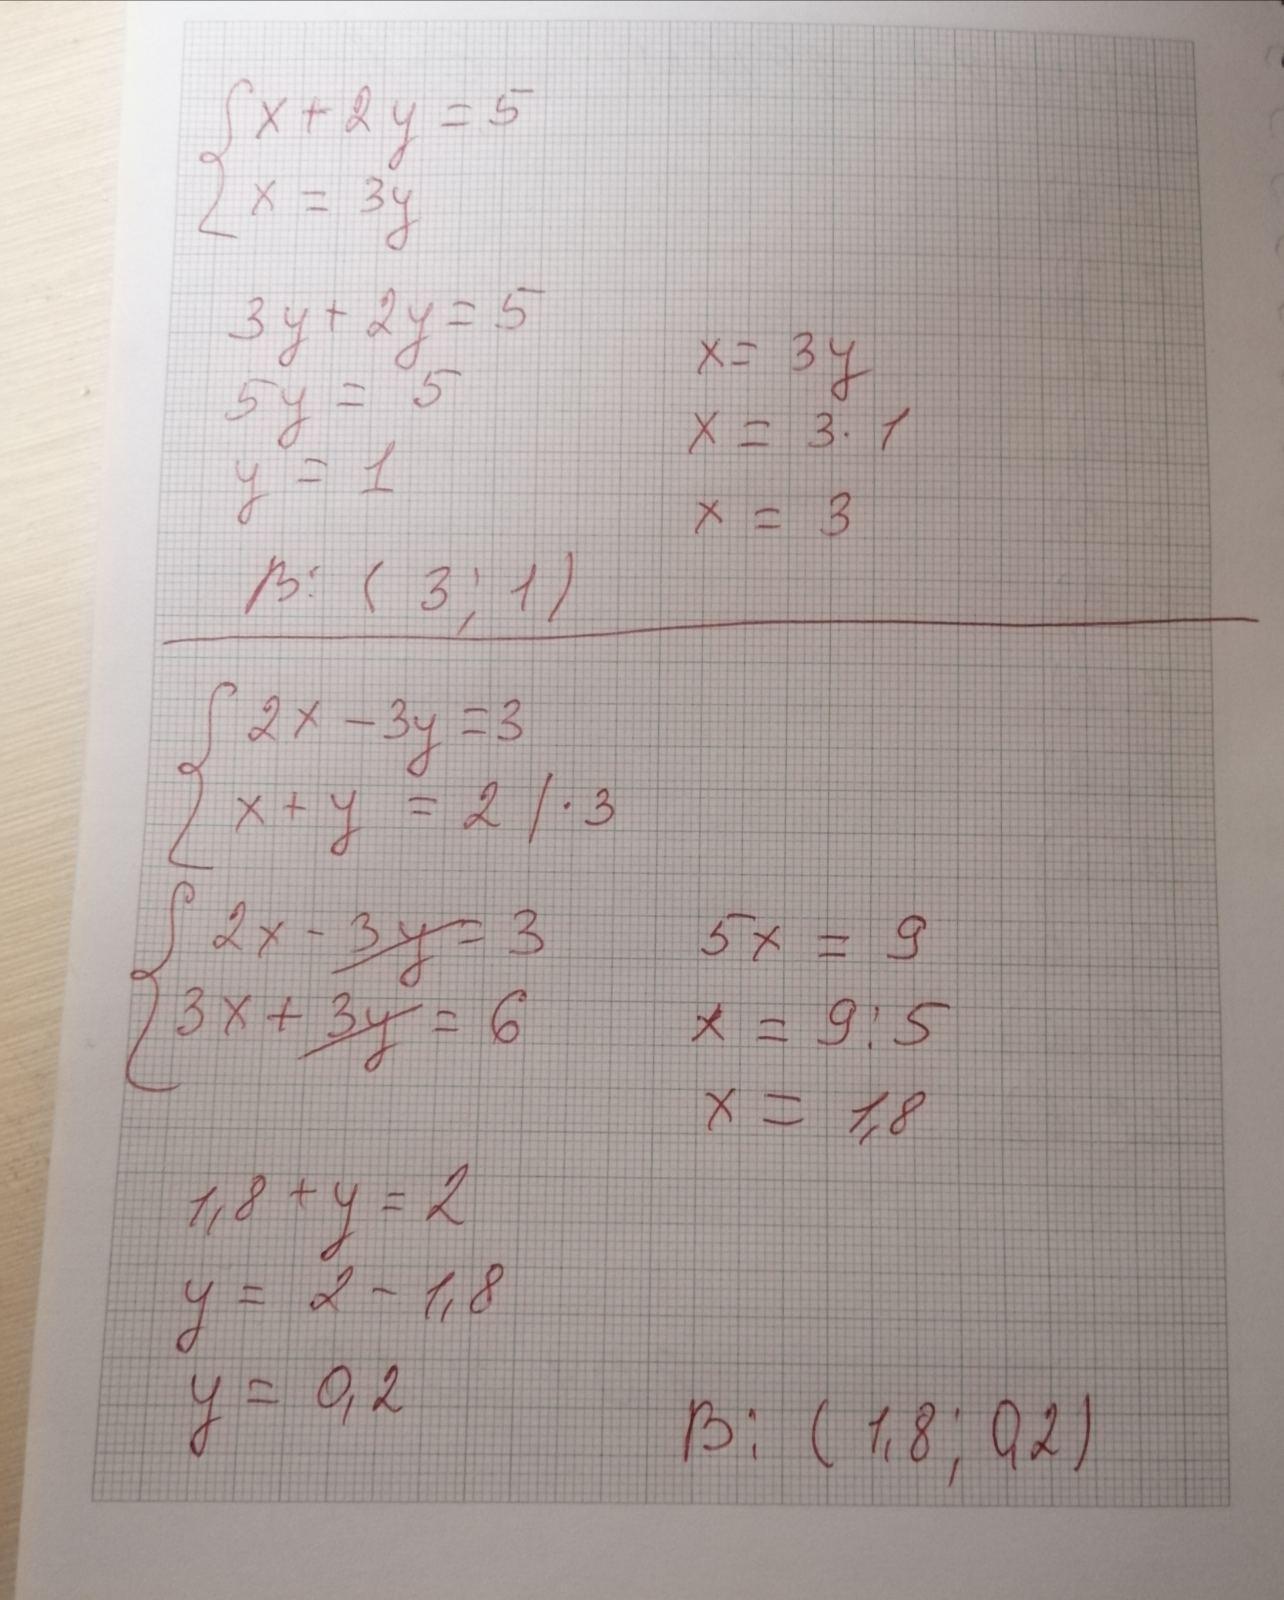 x + 2y = 5
x = 3y
3y + 2y = 5
5y = 5
y = 1
x = 3y
x = 3 · 1
x = 3
В: (3; 1)
2x - 3y = 3
x + y = 2 / · 3
2x - 3y = 3
3x + 3y = 6
5x = 9
x = 9 : 5
x = 1,8
1,8 + y = 2
y = 2 - 1,8
y = 0,2
В: (1,8; 0,2)